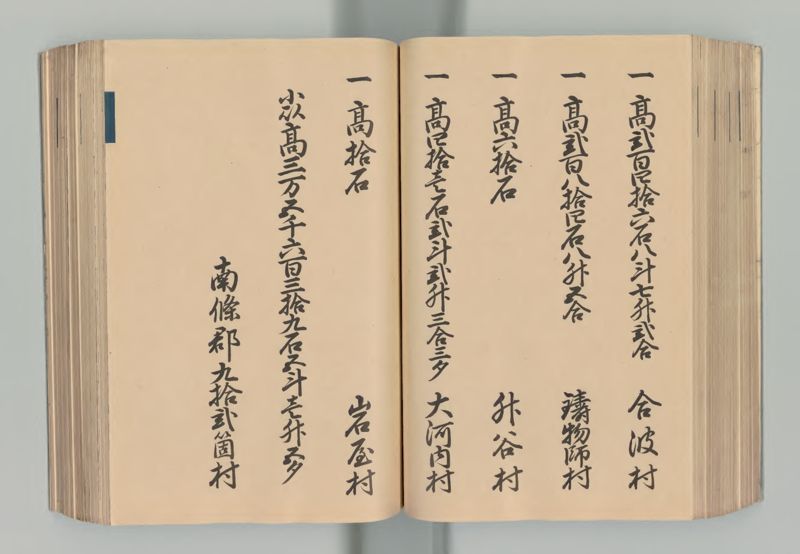 一 高弐百四拾六石八斗七升弐合 合波村
一 高弐百八拾四石八升五合 鋳物師村
一 高六拾石 升谷村
一 高四拾壱石弐斗弐升三合三夕 大河内村
一 高拾石 岩屋村
小以高三万五千六百三拾九石五斗壱升五夕
南條郡九拾弐箇村